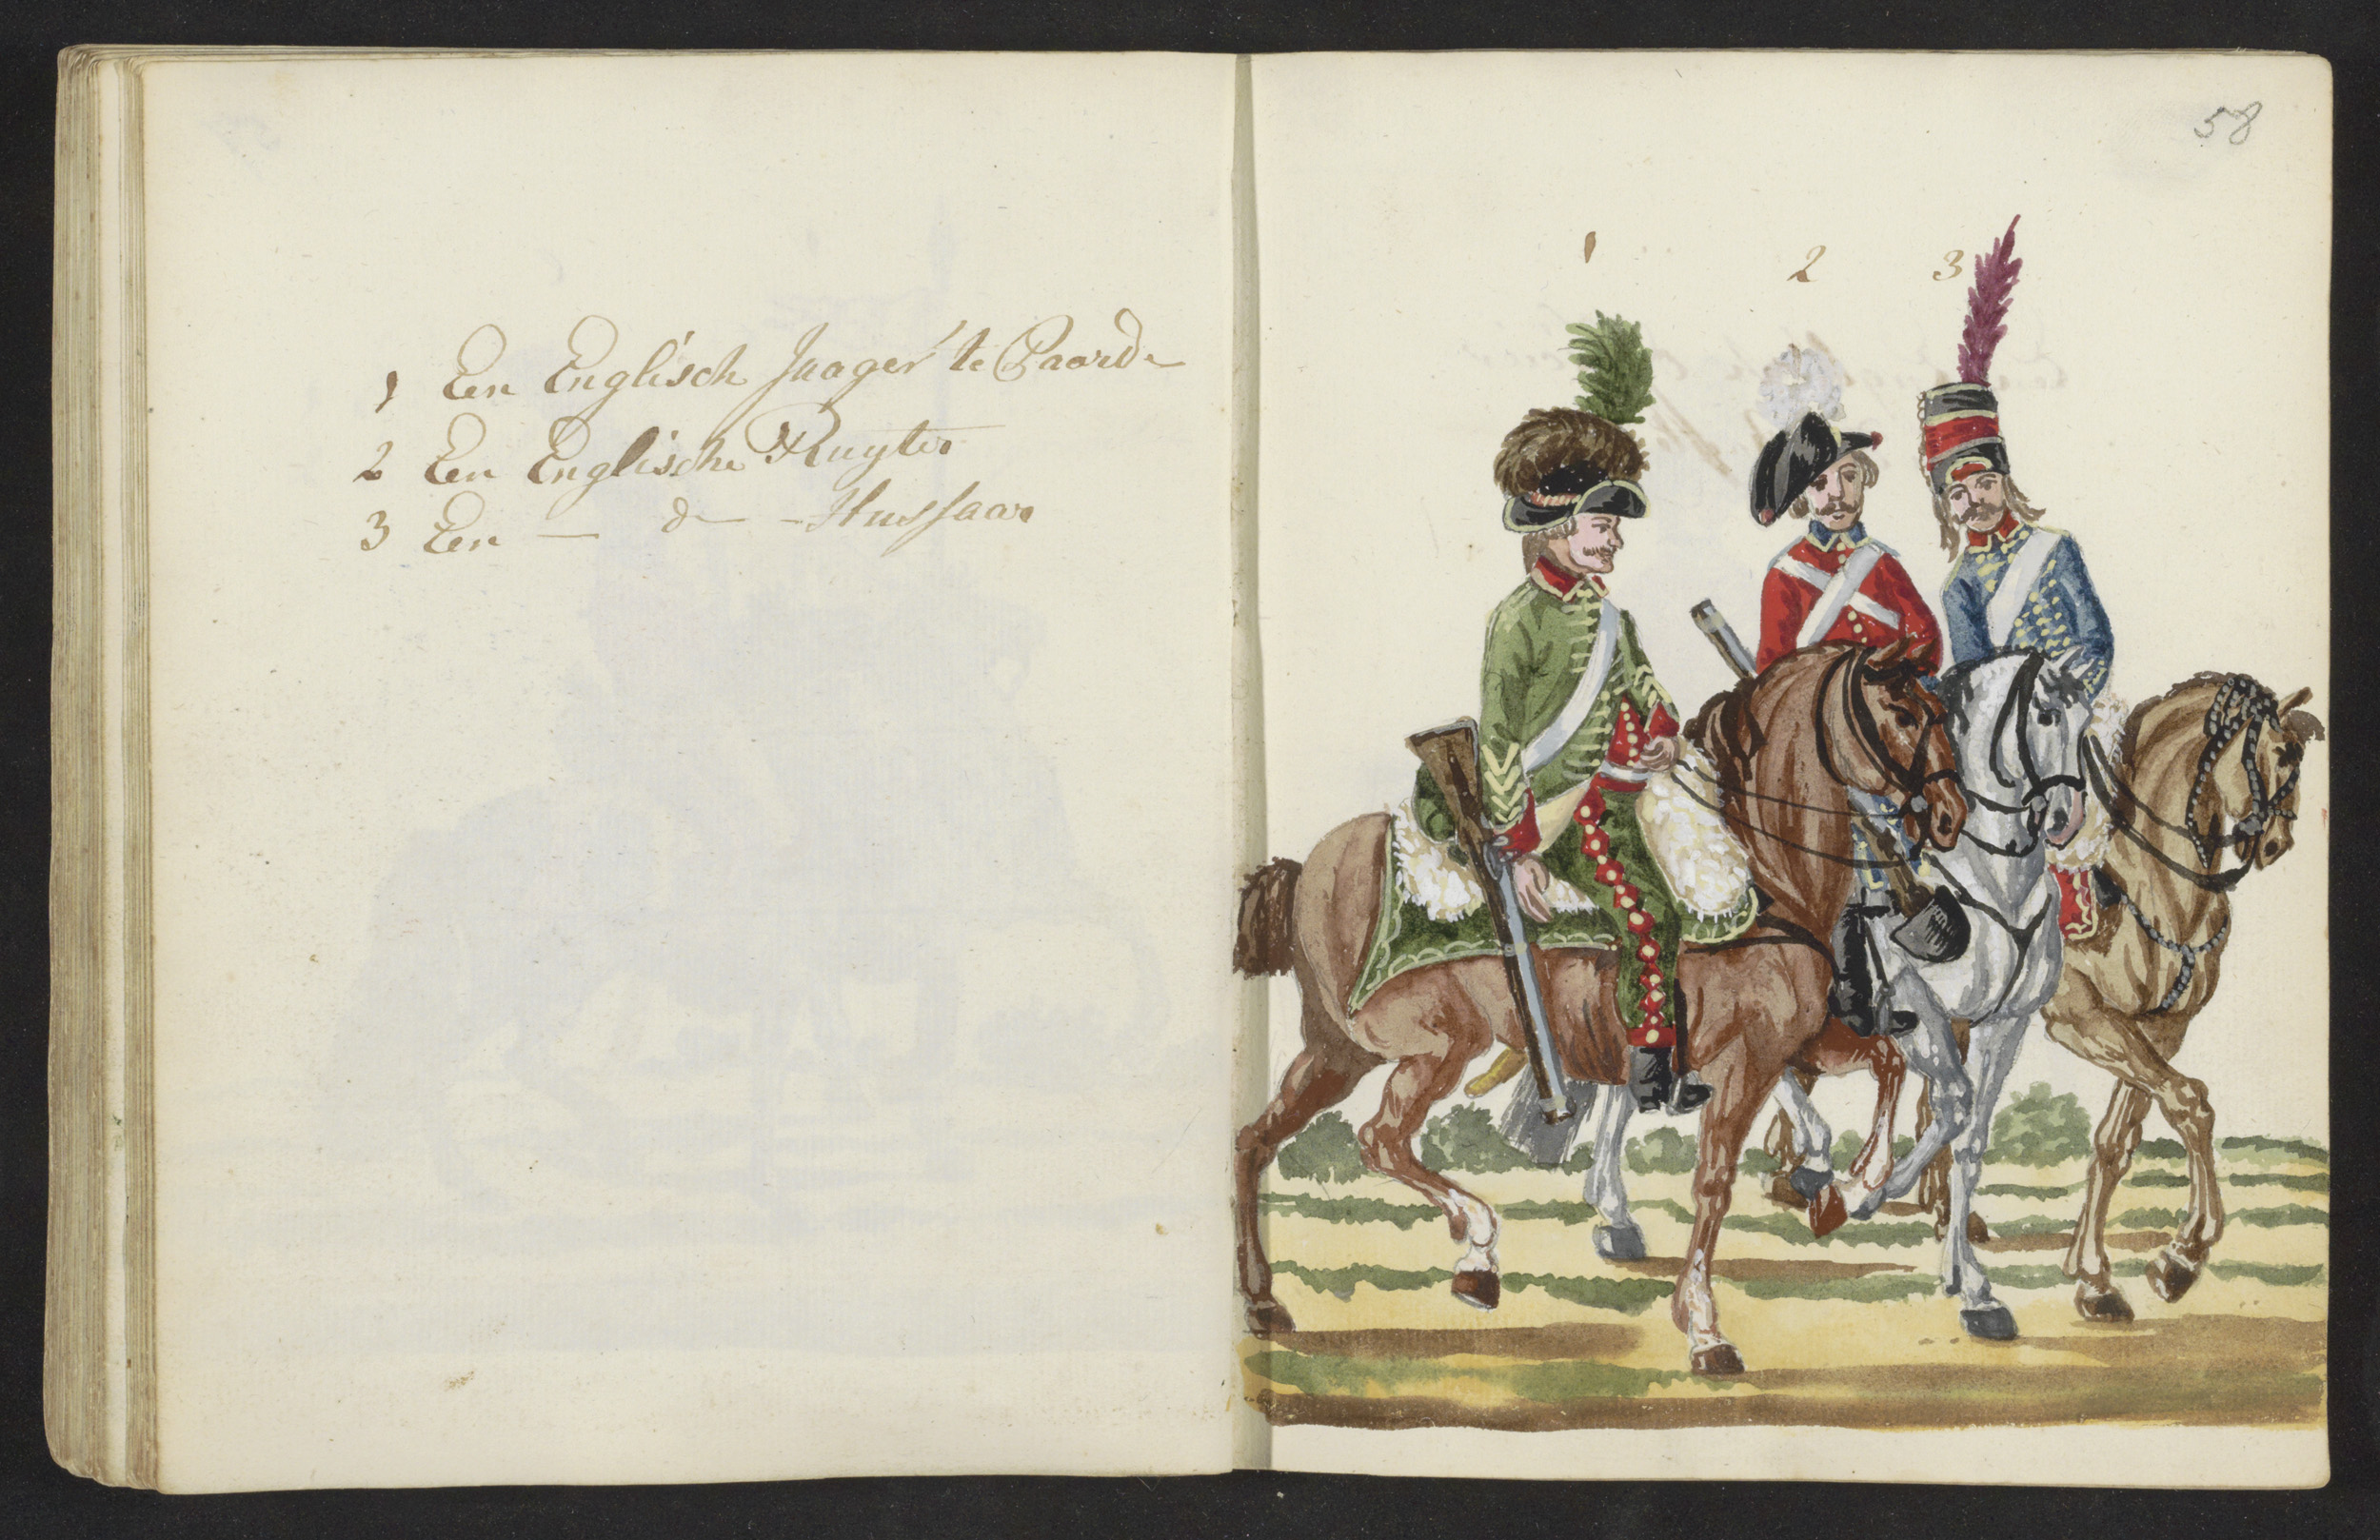 1 Een Englisch Jaager te Paarde
2 Een Englische Ruyter
3 Een — do — Hussaar
58
1 2 3